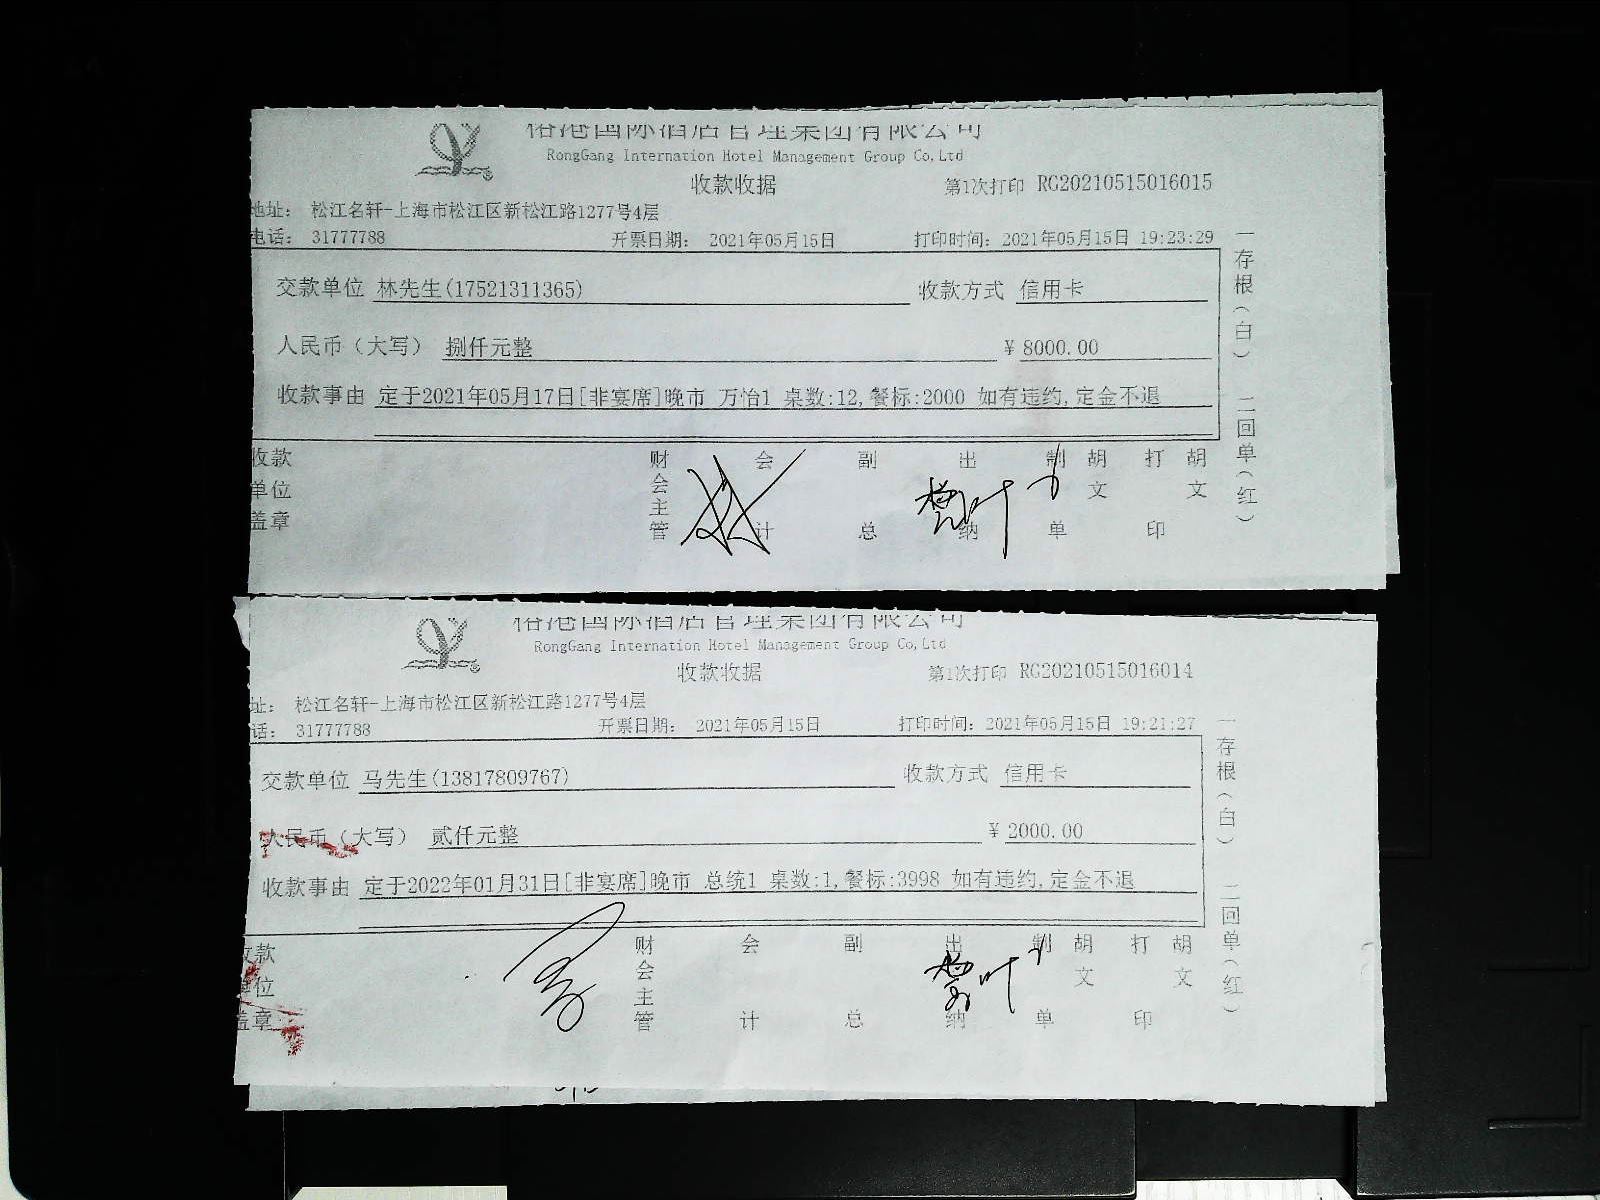 国际酒店管理集团有限公司
RongGang Internation Hotel Management Group Co,Ltd
收款收据
第1次打印 RG20210515016015
地址： 松江名轩-上海市松江区新松江路1277号4层
电话： 31777788
开票日期： 2021年05月15日
打印时间：2021年05月15日 19:23:29
交款单位 林先生(17521311365)
收款方式 信用卡
人民币（大写） 捌仟元整
¥ 8000.00
收款事由 定于2021年05月17日[非宴席]晚市 万怡1 桌数:12,餐标:2000 如有违约,定金不退
收款单位盖章
财会主管
会计
副总
出纳
制单
胡文
打印
胡文
一存根（白） 二回单（红）
国际酒店管理集团有限公司
RongGang Internation Hotel Management Group Co,Ltd
收款收据
第1次打印 RG20210515016014
址： 松江名轩-上海市松江区新松江路1277号4层
话： 31777788
开票日期： 2021年05月15日
打印时间：2021年05月15日 19:21:27
交款单位 马先生(13817809767)
收款方式 信用卡
人民币（大写） 贰仟元整
¥ 2000.00
收款事由 定于2022年01月31日[非宴席]晚市 总统1 桌数:1,餐标:3998 如有违约,定金不退
收款单位盖章
财会主管
会计
副总
出纳
制单
胡文
打印
胡文
一存根（白） 二回单（红）